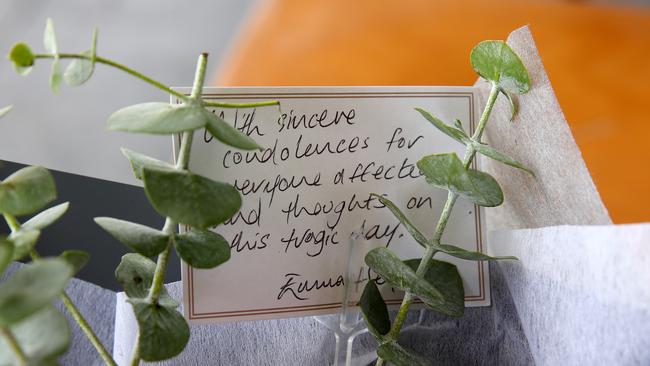 With sincere
condolences for
everyone affected
and thoughts on
this tragic day.
Emma